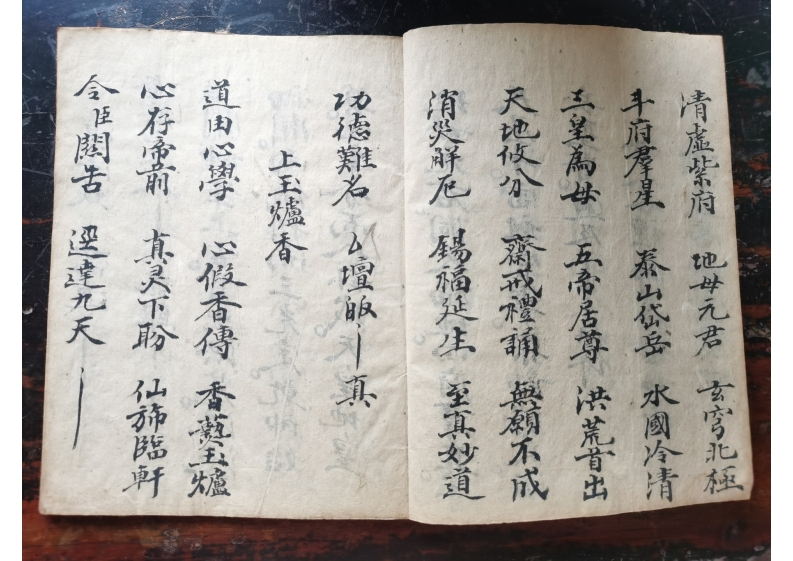 清虛紫府 地母元君 玄穹北極
斗府羣星 泰山岱岳 水國冷清
三皇為母 五帝居尊 洪荒首出
天地攸分 齋戒禮誦 無願不成
消災解厄 錫福延生 至真妙道
功德難名 厶壇皈 真
上玉爐香
道由心學 心假香傳 香爇玉爐
心存帝前 真灵下盼 仙斾臨軒
令臣關告 逕達九天